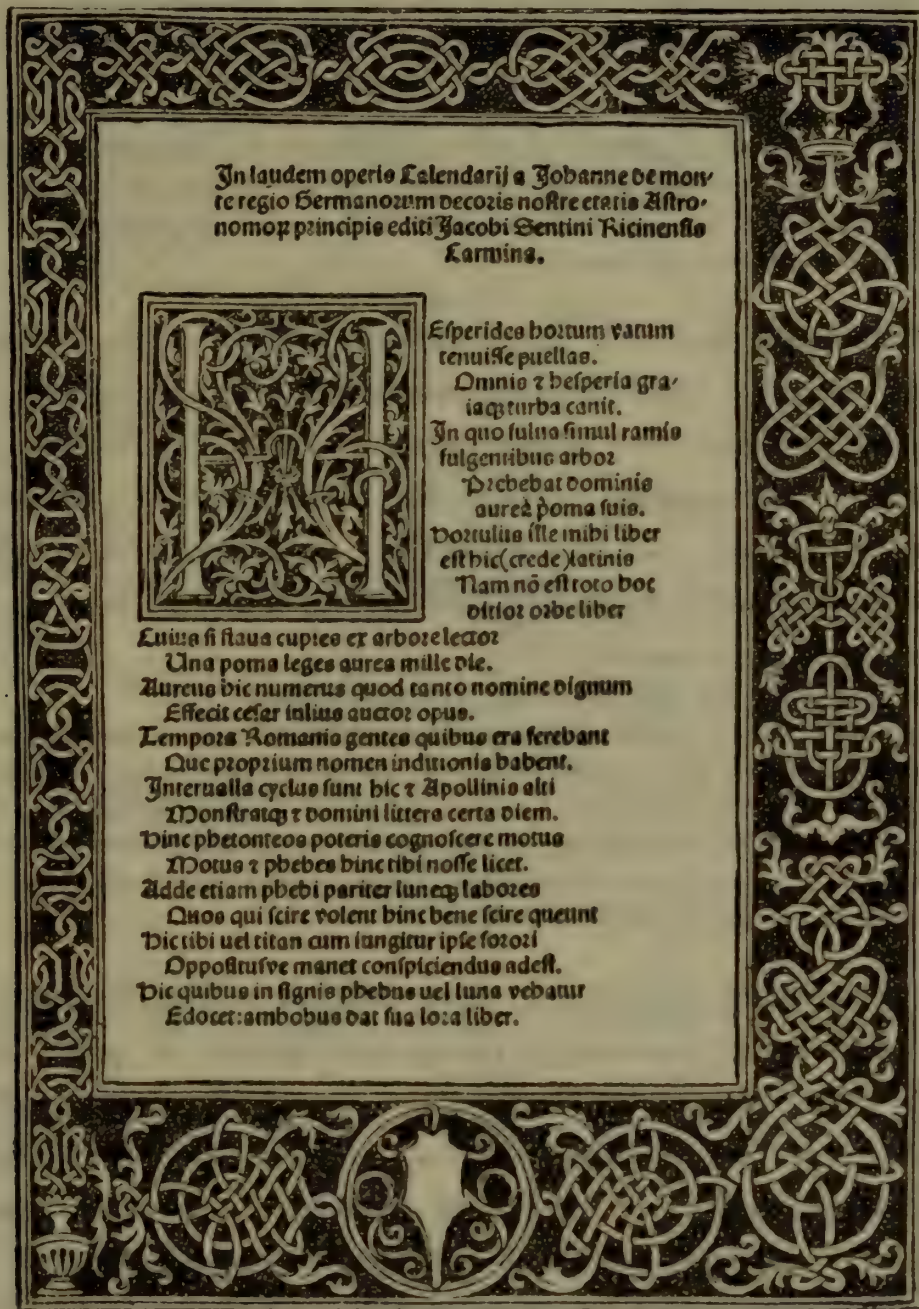 In laudem operis Calendarij a Johanne de mon⸗
te regio Germanorum decoris nostre etatis Astro⸗
nomoꝝ principis editi Jacobi Sentini Ricinensis
Carmina.
HEsperides hortum vatum
tenuisse puellas.
Omnis ⁊ hesperia gra⸗
iaqꝫ turba canit.
In quo fulua simul ramis
fulgentibus arbor
Prebebat dominis
aurea poma suis.
Hortulus iste mihi liber
est hic(crede)latinis
Nam nō est toto hoc
ditior orbe liber
Cuius si flaua cupies ex arbore lector
Una poma leges aurea mille die.
Aureus hic numerus quod tanto nomine dignum
Effecit cesar iulius auctor opus.
Tempora Romanis gentes quibus era ferebant
Que proprium nomen inditionis habent.
Interualla cyclus sunt hic ⁊ Apollinis alti
Monstratqꝫ ⁊ domini littera certa diem.
Hinc phetonteos poteris cognoscere motus
Motus ⁊ phebes hinc tibi nosse licet.
Adde etiam phebi pariter luneqꝫ labores
Quos qui scire volent hinc bene scire queunt
Hic tibi uel titan cum iungitur ipse sorori
Oppositusve manet conspiciendus adest.
Hic quibus in signis phebus uel luna vehatur
Edocet:ambobus dat sua lora liber.